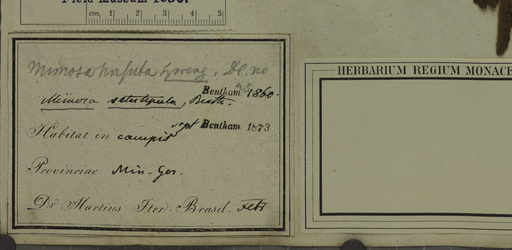 Field Museum
cm. 1 2 3 4 5
Mimosa hirsuta Spreng. DC. no
Mimosa setistipula, Benth.
Bentham 1860.
Habitat in campis
Sept Bentham 1873
Provinciae Min-Ger.
Dr Martius Iter Brasil. Febr
HERBARIUM REGIUM MONACE